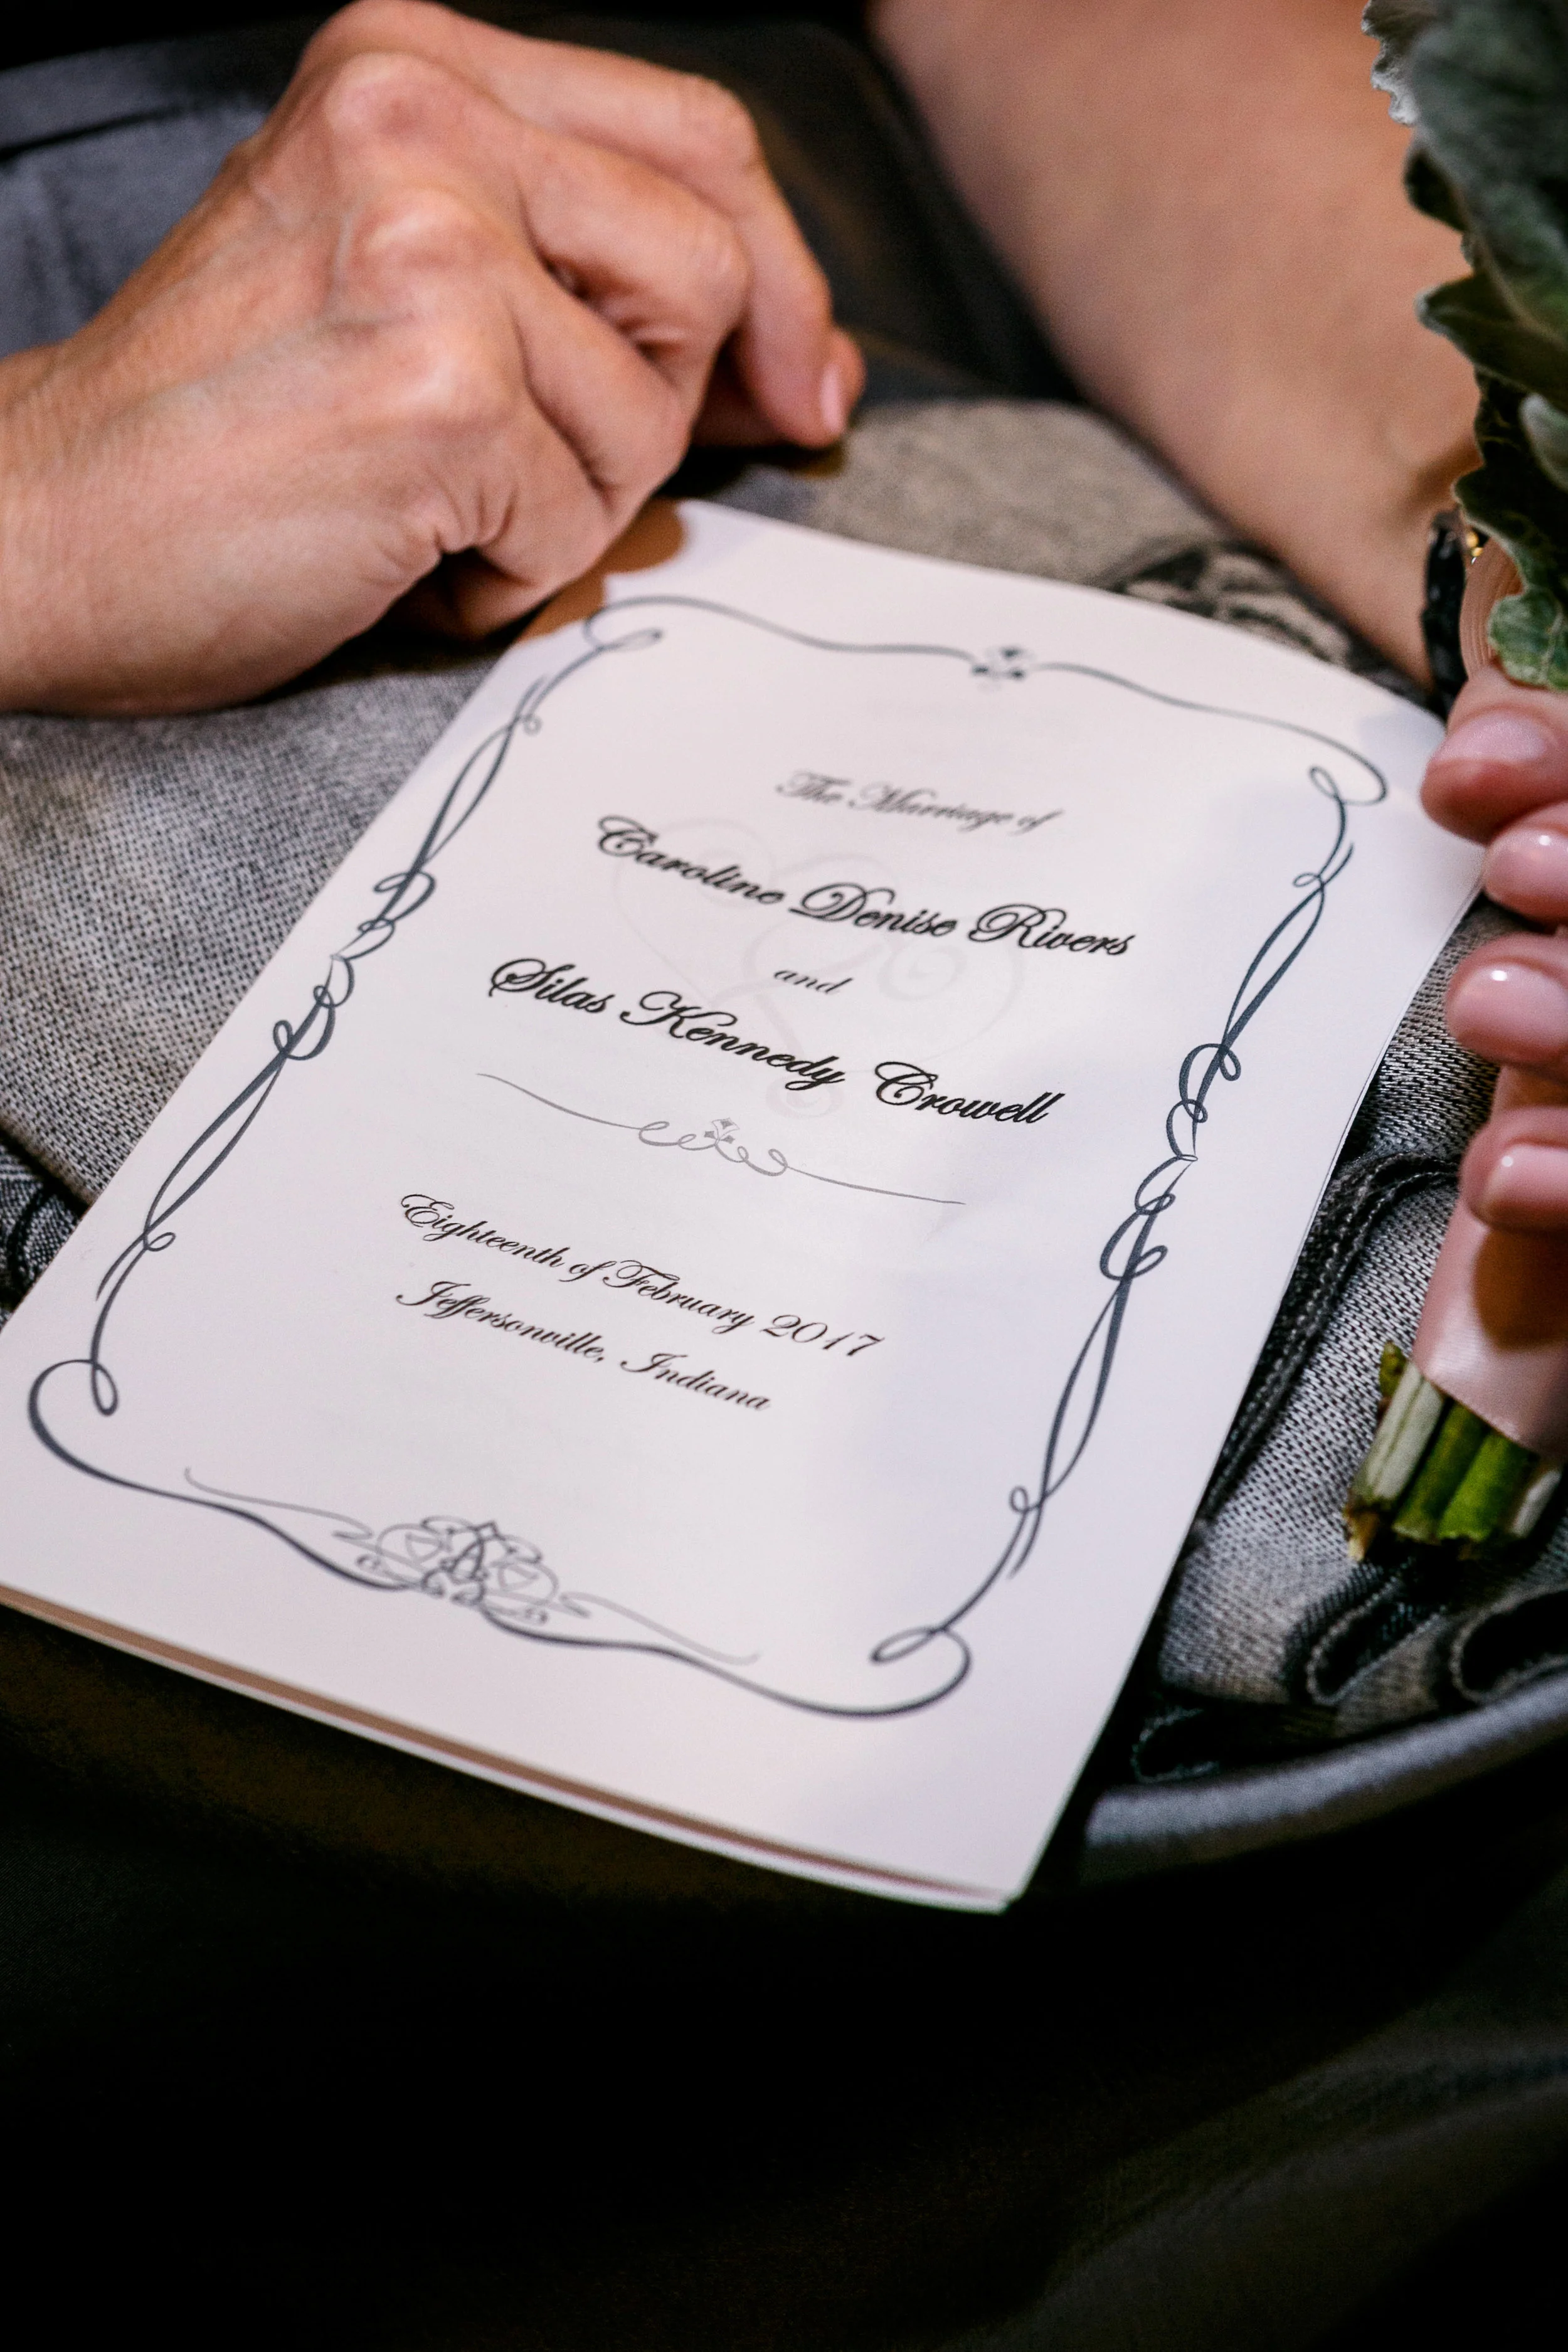 The Marriage of
Caroline Denise Rivers
and
Silas Kennedy Crowell
Eighteenth of February 2017
Jeffersonville, Indiana